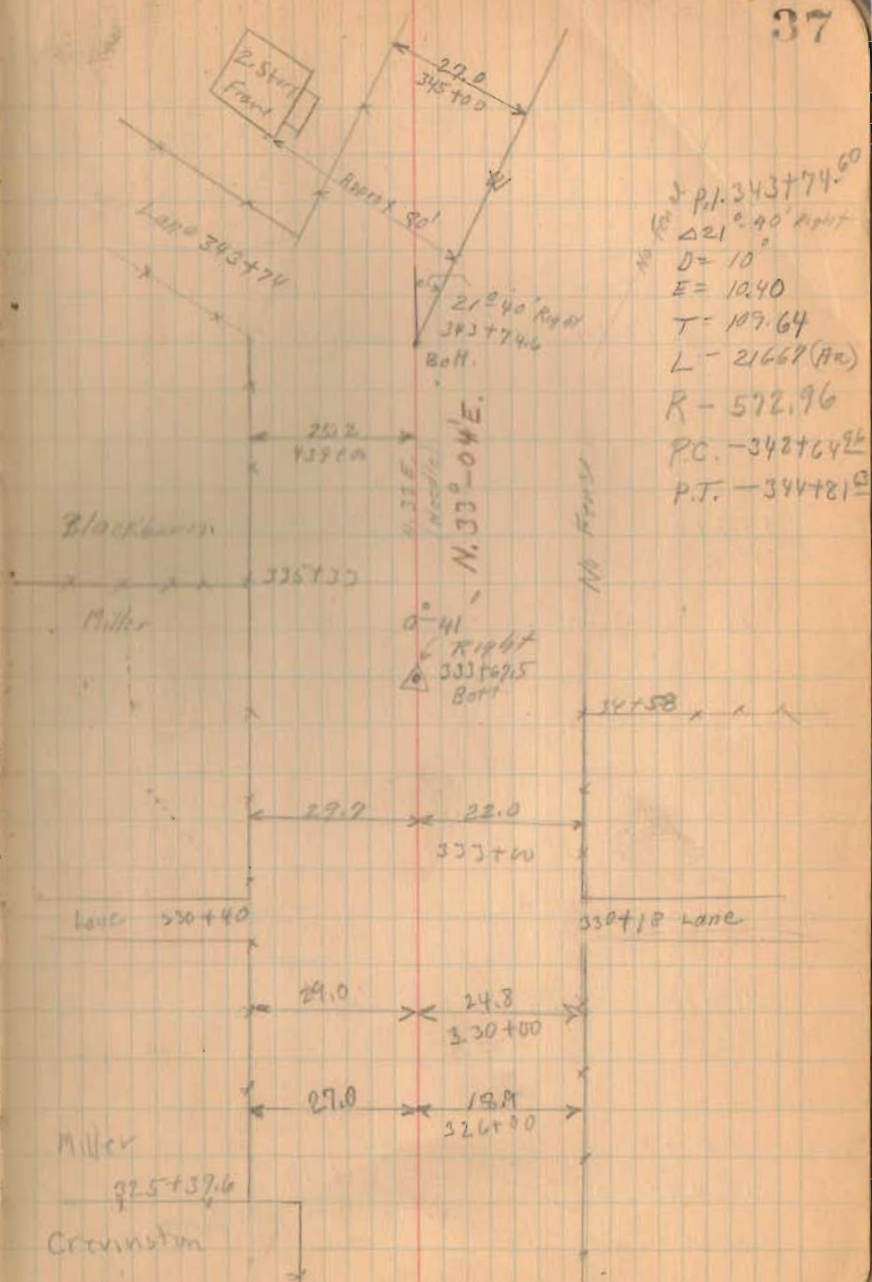 37
2. Story
Frame
27.0
345+00
Approx 80'
Lane 343+74
No Fence
P.I. 343+74.60
Δ 21°-40' Right
D = 10°
E = 10.40
T = 109.64
L - 216.67 (Arc)
R - 572.96
P.C. - 342+64.96
P.T. - 344+81
21°40' Right
343+74.6
Bolt.
25.2
439+00
N.32E.
Needle
N.33°-04'E.
No Fence
Blackburn
335+33
Miller
0°-41'
Right
333+67.5
Bolt
34+58
29.7 22.0
333+00
Lane 330+40
330+18 Lane
29.0 24.8
330+00
27.0 18.9
326+00
Miller
325+39.6
Crevinston